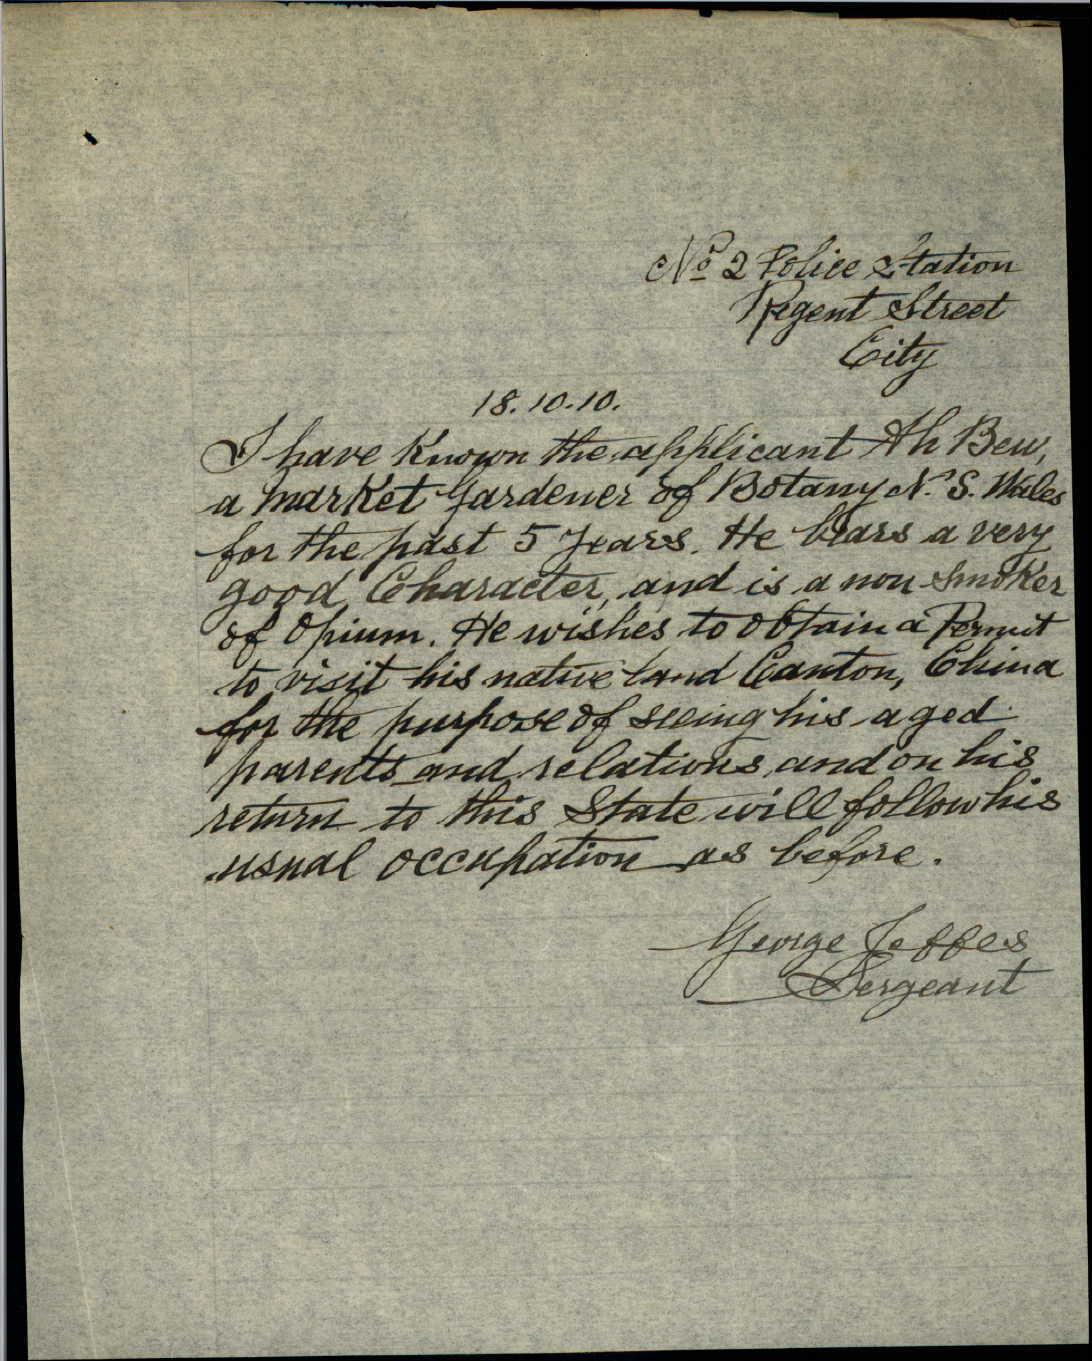 No 2 Police Station
Regent Street
City
18.10.10.
I have Known the applicant Ah Bew,
a Market Gardener of Botany N. S. Wales
for the past 5 Years. He bears a very
good Character, and is a non Smoker
of Opium. He wishes to obtain a Permit
to visit his native land Canton, China
for the purpose of seeing his aged
parents and relations, and on his
return to this State will follow his
usual occupation as before.
George Jeffes
Sergeant